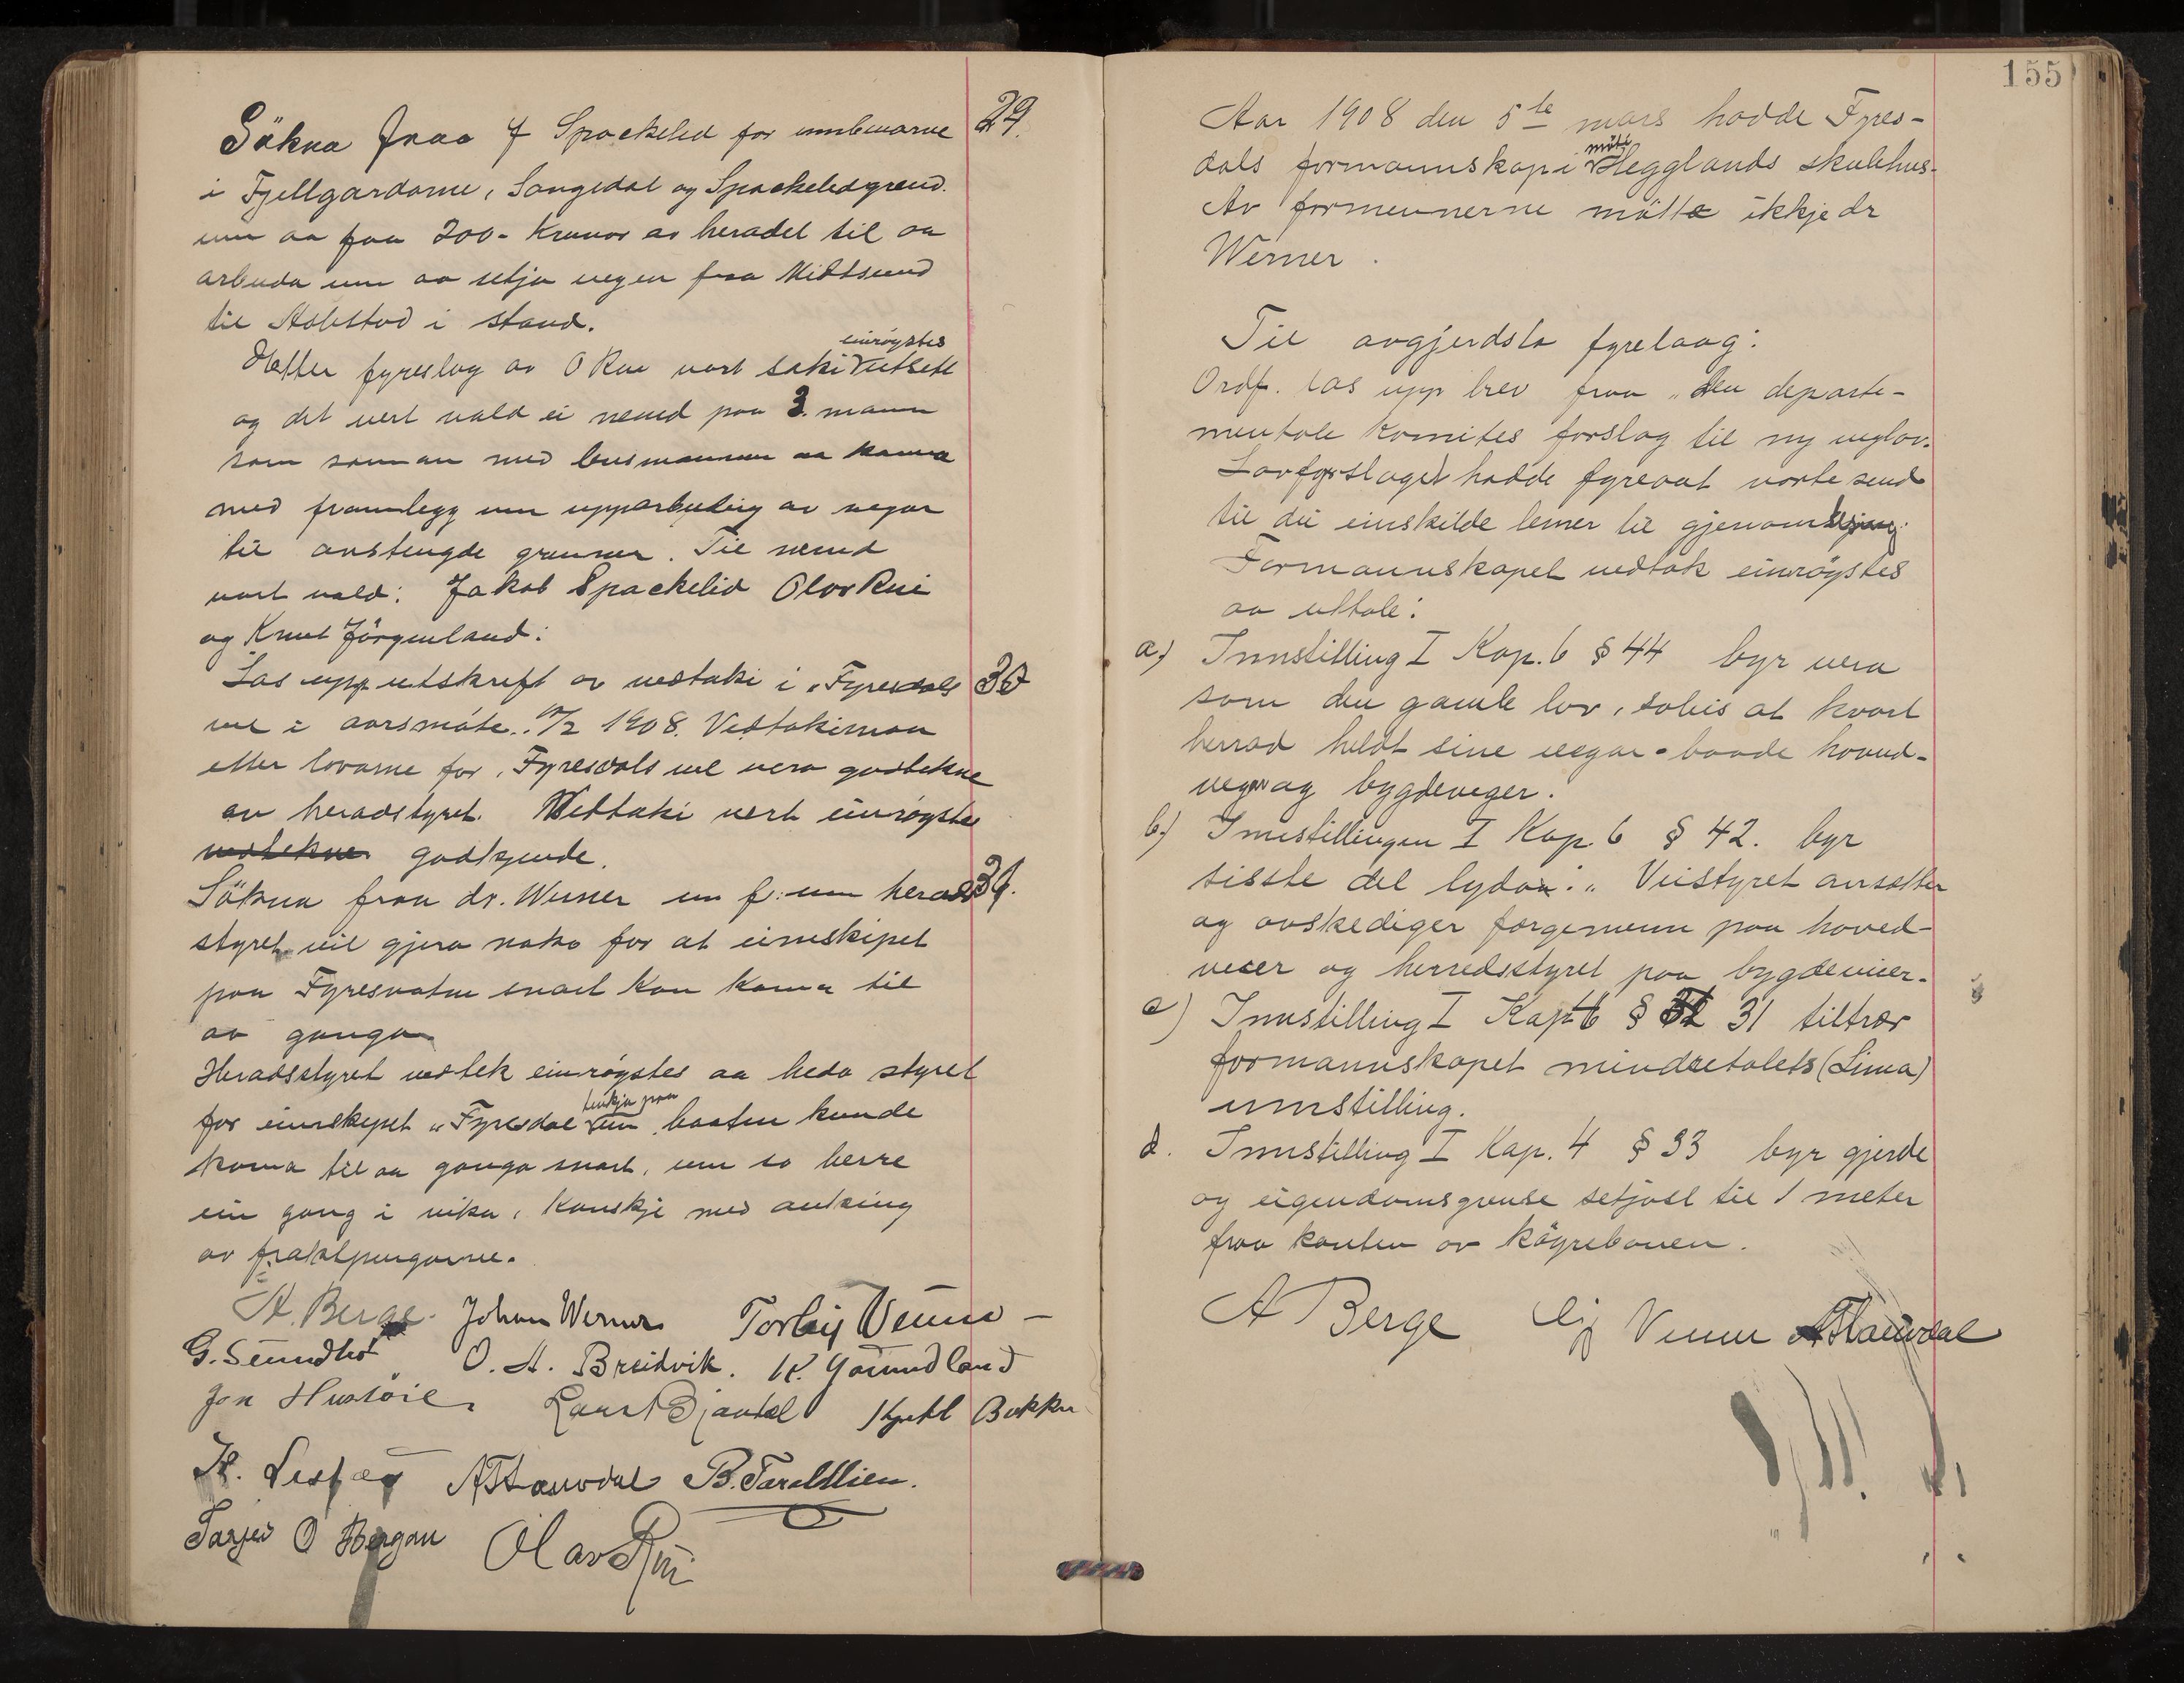 Sökna fraa J Spockelid for innbuarne 29.
i Fjellgardarne, Songedal og Spockelidgrend.
um aa faa 200- Kronor av heradet til aa
arbeida um aa setja vegen fraa Midtsund
til i stand.
Etter fyreslag av O Rui vart saki einrøystes utsett
og det vert vald ei nemd paa 3 mann
som saman med lensmannen aa koma
med framlegg um upparbeiding av vegar
til avstengde grenner. Til nemd
vart vald: Jakob Spockelid Olav Rui
og Knut Jörgenland:
Las upp utskrift av vedtaki i "Fyresdals 30
vel i aarsmöte 1908. Vedtaki maa
etter lovarne for "Fyresdals vel vera godtekne
av heradstyret. Vedtaki vert einrøystes
vedtekne godkjende.
Sökna fraa dr. Werner um f: um herads 31.
styret vil gjera noko for at eimskipet
paa Fyresvatn snart kan koma til
aa ganga
Heradsstyret vedtek einrøystes aa beda styret
for eimskipet "Fyresdal tenkja paa um baaten kunde
koma til aa ganga snart, um so berre
ein gong i vika, kanskje med auking
av fraktpengarne.
A. Berge. Johan Werner Torleiv Veum -
G. Sundbö O. A. Breidvik. K. Gaumdland
Jon Hustöil. Kjetil Bakken
A Haurdal B. Taraldlien.
Tarjei O Haugan Olav Rui
155
Aar 1908 den 5te mars hadde Fyres-
dals formannskap möte i Hegglands skulehus.
Av formennerne mötte ikkje dr
Werner.
Til avgjerdsla fyrelaag:
Ordf. las upp brev fraa "den departe-
mentale komites forslag til ny veglov.
Lovforslaget hadde fyreaat vorte send
til dei einskilde lemer til gjenomlesing.
Formannskapet vedtok einrøystes
aa uttale:
a.) Innstilling I Kap. 6 § 44 byr vera
som den gamle lov, soleis at kvart
herrad heldt sine vegar - baade hovud-
vegar og bygdeveger.
b.) Innstillingen I Kap. 6 § 42. byr
sisste del lyda: "Veistyret ansetter
og avskediger forgemenn paa hoved-
veier og herredsstyret paa bygdeveier.
c) Innstilling I Kap 6 § 31 tiltrær
formannskapet mindretalets (Lima)
innstilling.
d. Innstilling I Kap. 4 § 33 byr gjerde
og eigendomsgrense setjast til 1 meter
fraa kanten av köyrebanen.
A Berge Veum A Haurdal